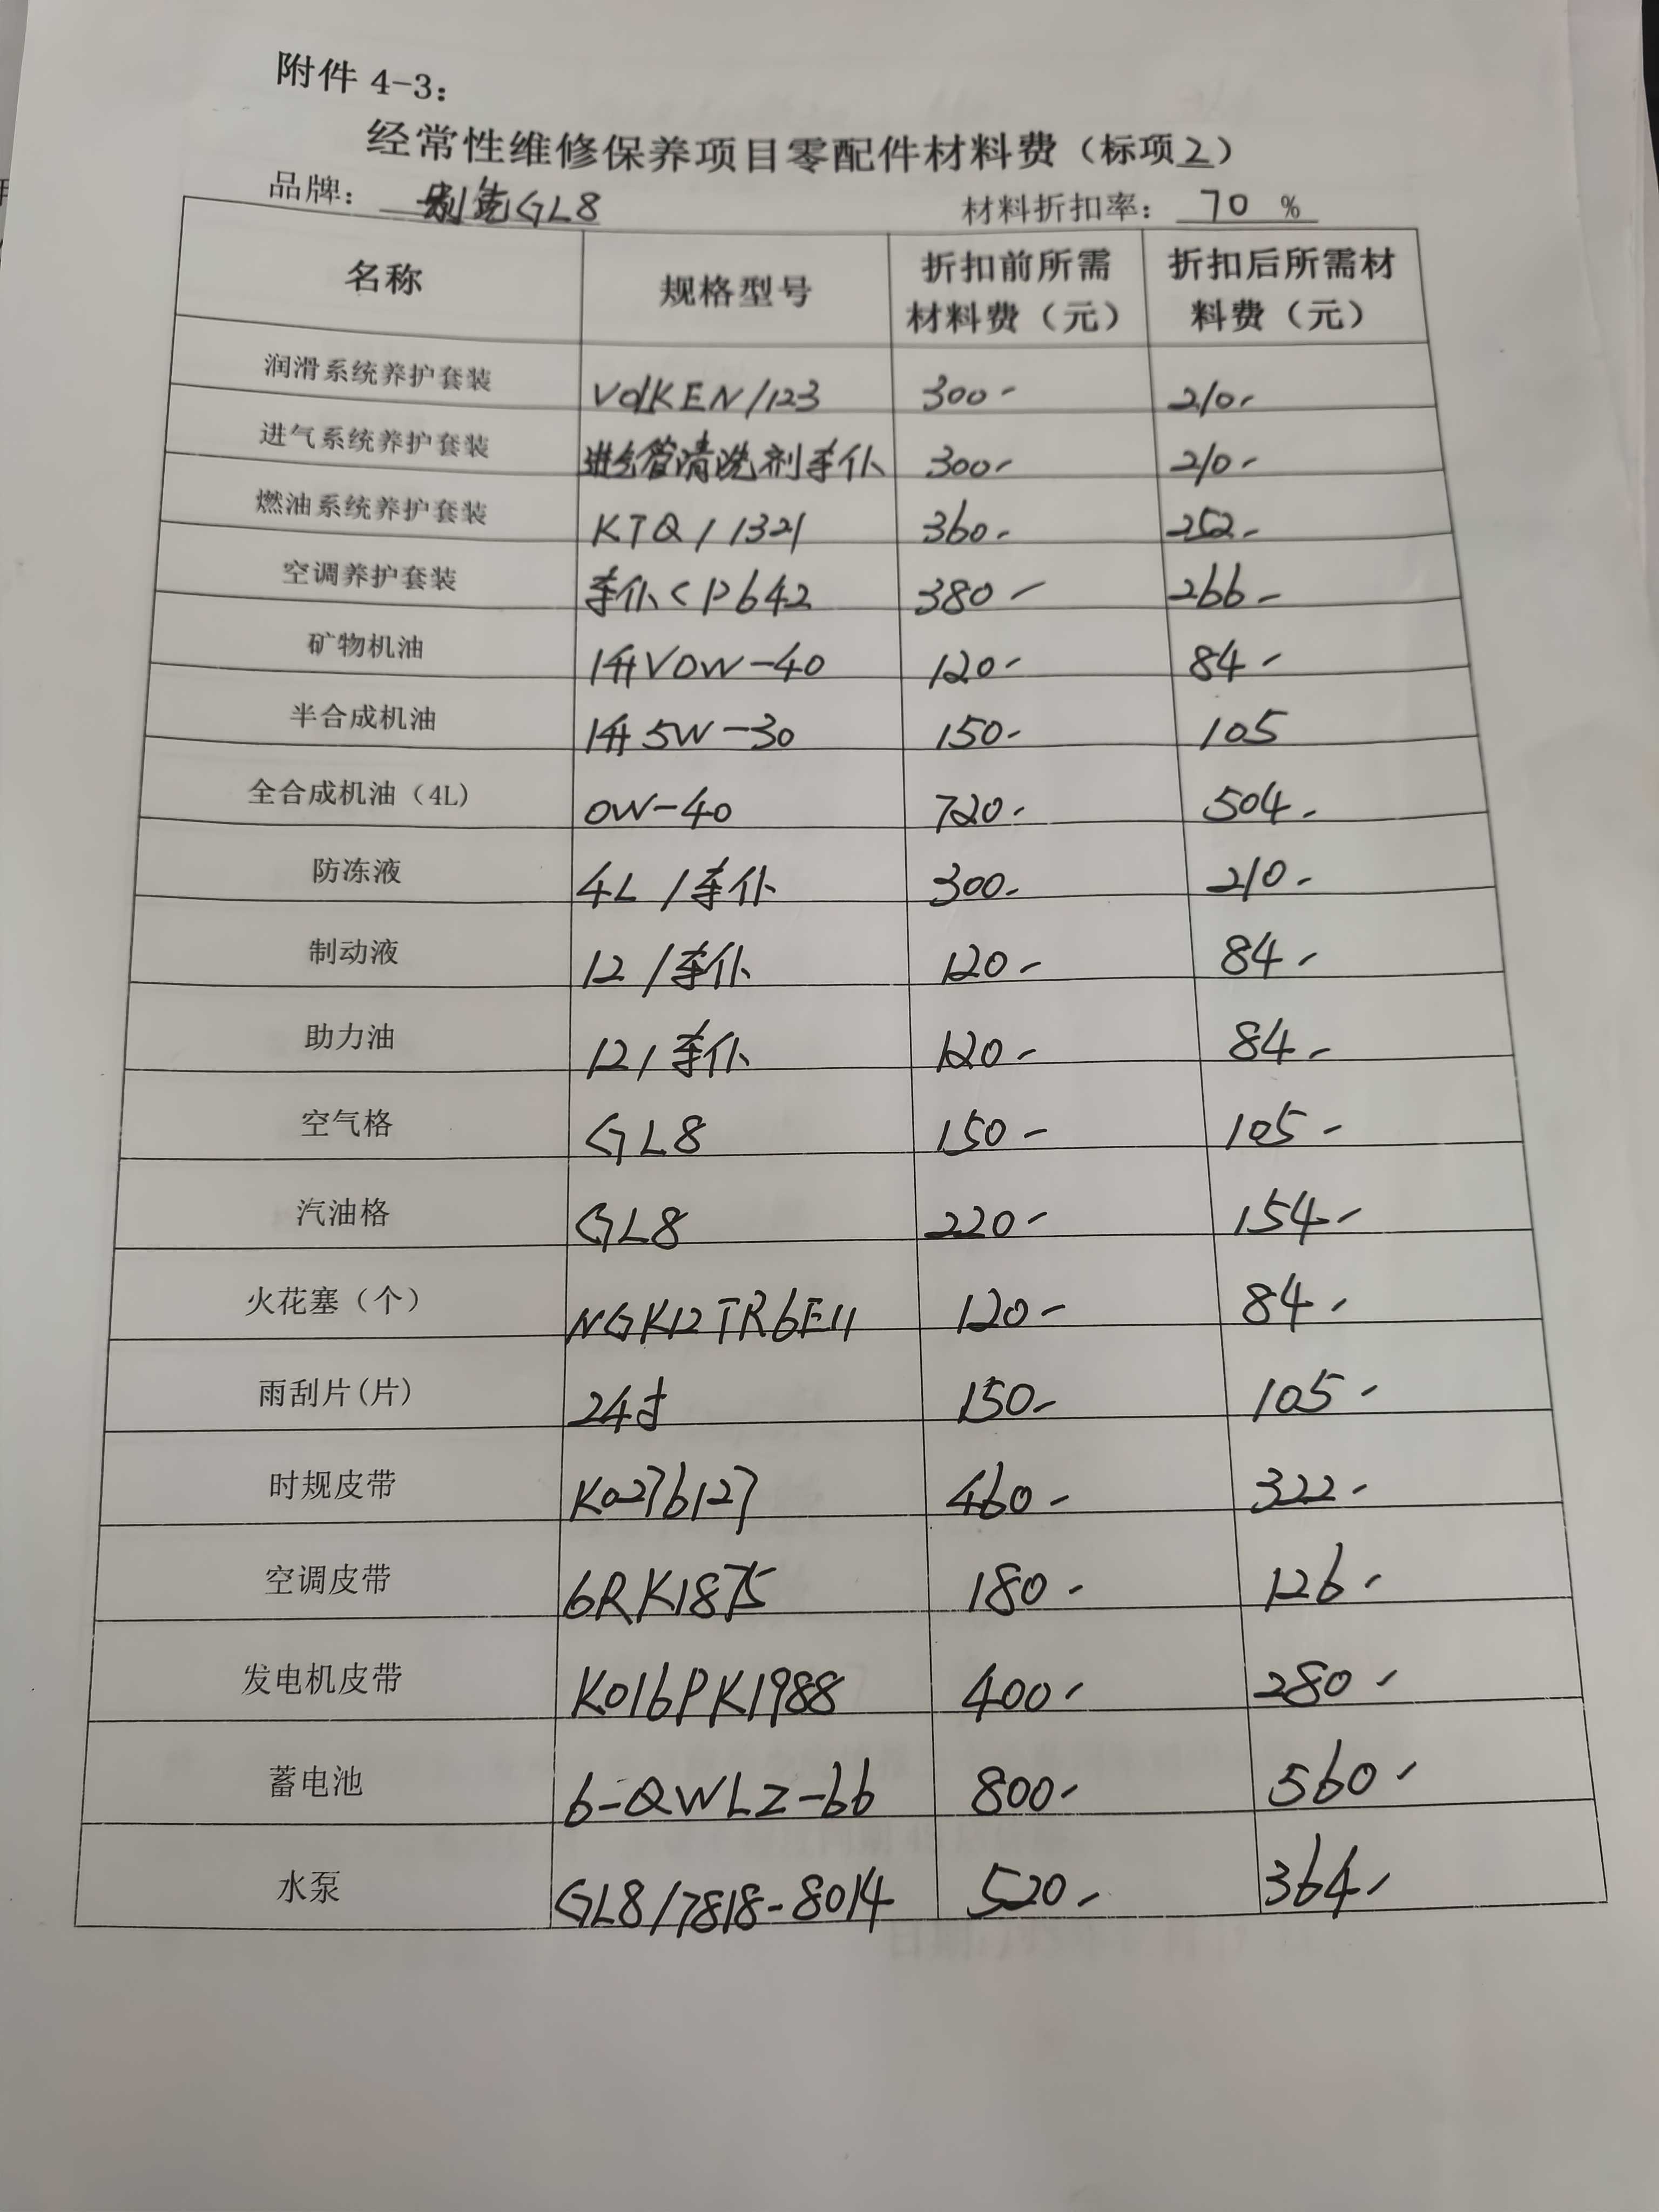 附件 4-3：
经常性维修保养项目零配件材料费（标项2）
品牌： 别克GL8 材料折扣率： 70 %
名称 规格型号 折扣前所需材料费（元） 折扣后所需材料费（元）
润滑系统养护套装 VOLKEN/123 300- 210-
进气系统养护套装 进气管清洗剂车仆 300- 210-
燃油系统养护套装 KTQ/1321 360- 252-
空调养护套装 车仆CP642 380- 266-
矿物机油 1升V0W-40 120- 84-
半合成机油 1升5W-30 150- 105
全合成机油（4L） 0W-40 720- 504-
防冻液 4L/车仆 300- 210-
制动液 12/车仆 120- 84-
助力油 12/车仆 120- 84-
空气格 GL8 150- 105-
汽油格 GL8 220- 154-
火花塞（个） NGK12TR6E11 120- 84-
雨刮片(片) 24寸 150- 105-
时规皮带 K0276127 460- 322-
空调皮带 6RK1875 180- 126-
发电机皮带 K016PK1988 400- 280-
蓄电池 6-QWLZ-66 800- 560-
水泵 GL8/7818-8014 520- 364-